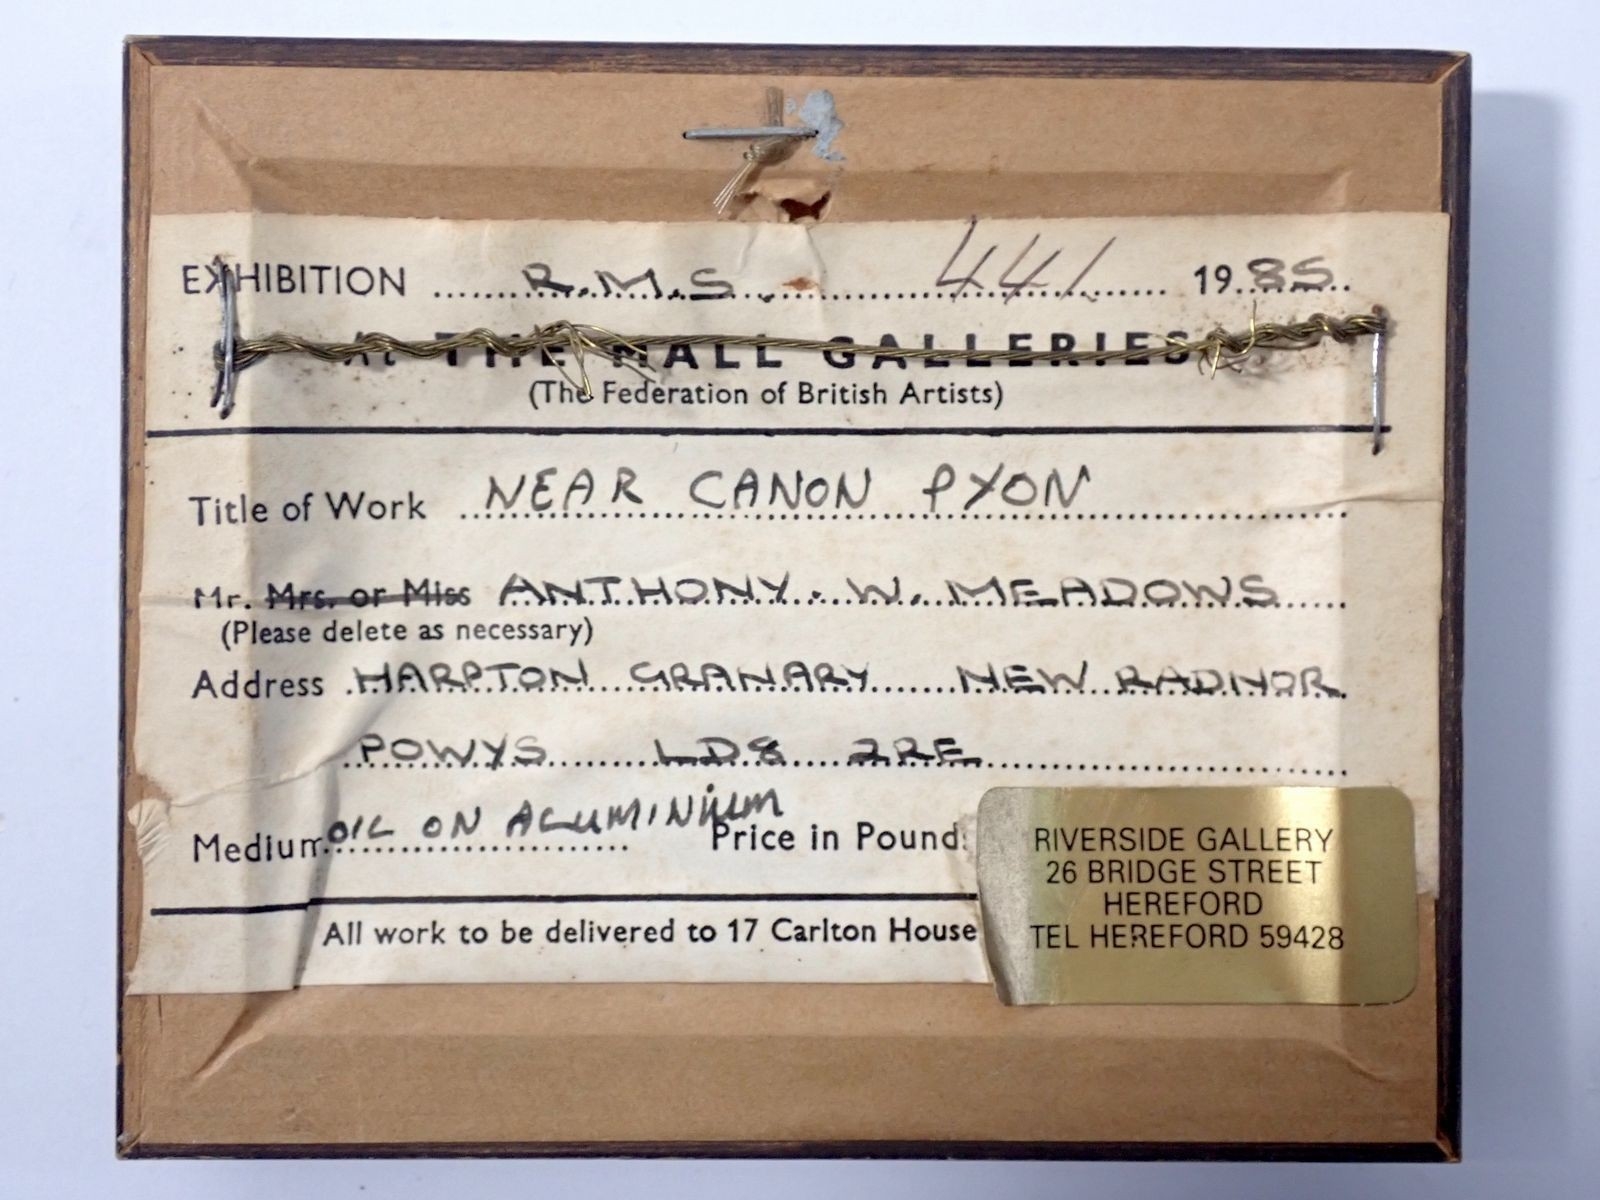 EXHIBITION R.M.S. 441 1985
At THE MALL GALLERIES
(The Federation of British Artists)
Title of Work NEAR CANON PYON
Mr. Mrs. or Miss ANTHONY. W. MEADOWS
(Please delete as necessary)
Address HARPTON GRANARY NEW RADNOR
POWYS LD8 2RE
Medium OIL ON ALUMINIUM Price in Pound
All work to be delivered to 17 Carlton House
RIVERSIDE GALLERY
26 BRIDGE STREET
HEREFORD
TEL HEREFORD 59428